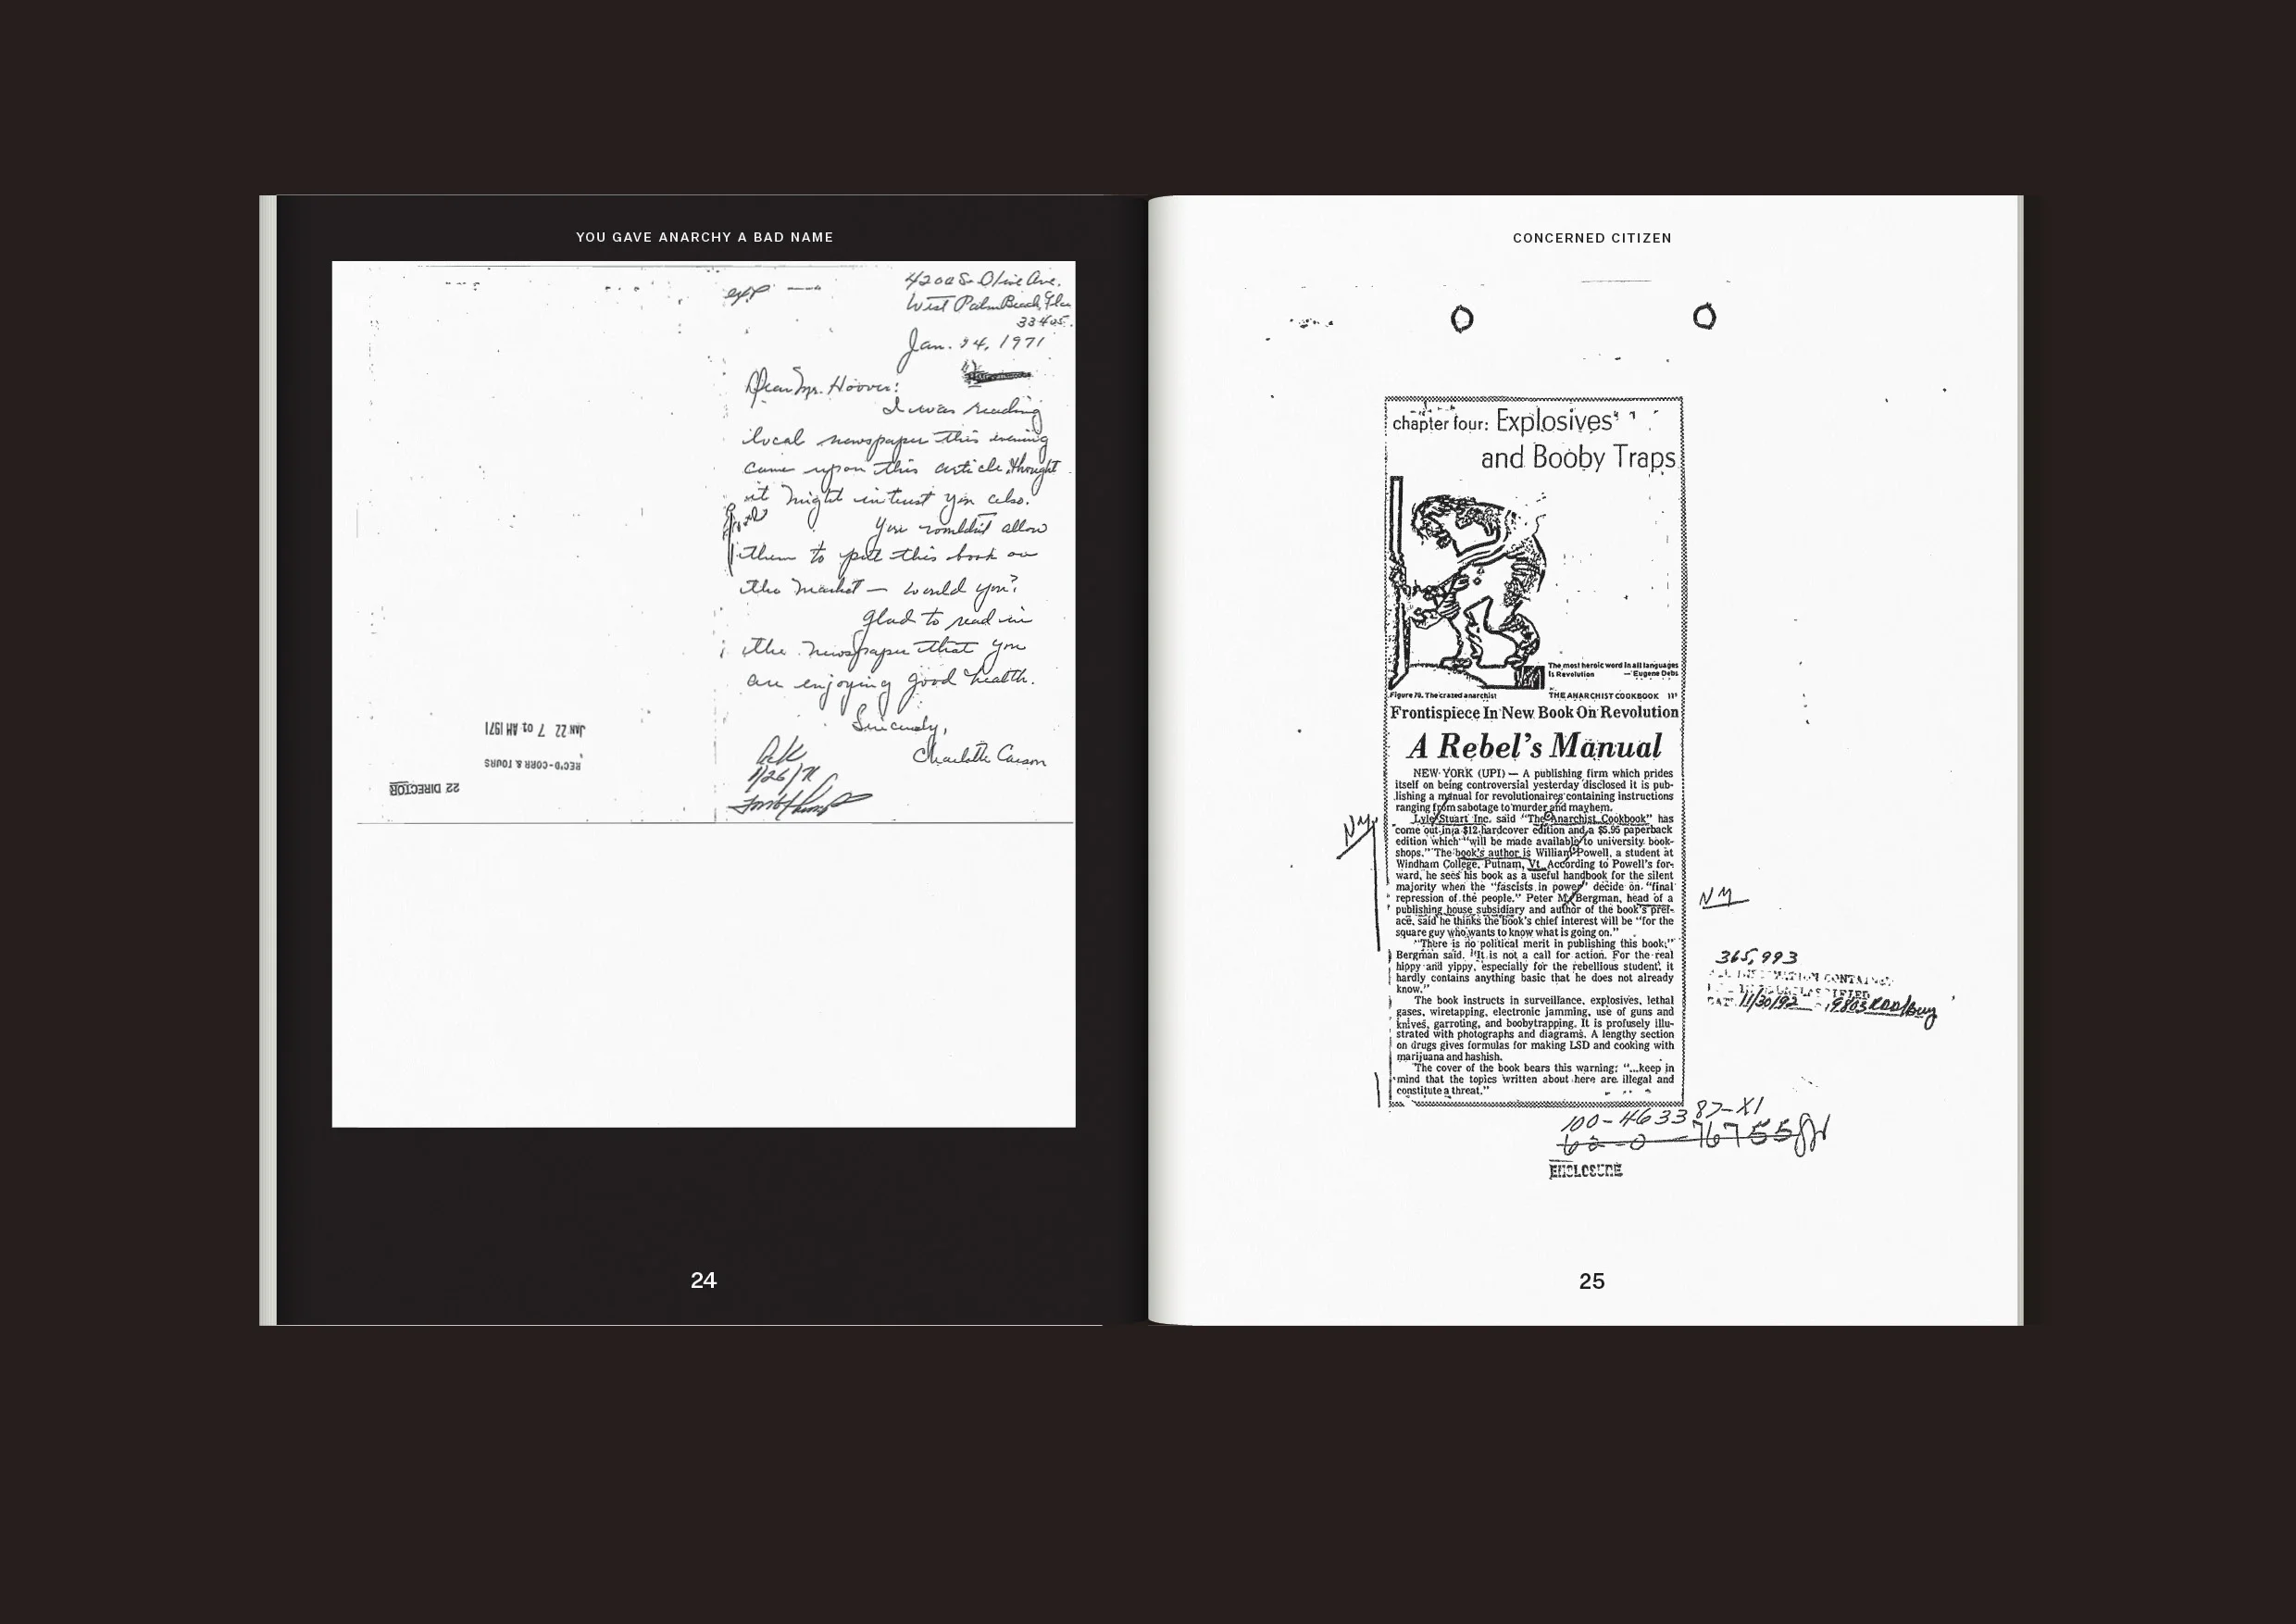 YOU GAVE ANARCHY A BAD NAME
4200 S. Olive Ave.
West Palm Beach, Fla
33405.
Jan. 24, 1971
Dear Mr. Hoover:
I was reading
local newspaper this evening
came upon this article, thought
it might interest you also.
You wouldn't allow
them to put this book on
the market — would you?
Glad to read in
the newspaper that you
are enjoying good health.
Sincerely,
Charlotte Carson
1/26/71
JAN 22 7 01 AM 1971
REC'D-CORR & TOURS
22 DIRECTOR
24
CONCERNED CITIZEN
chapter four: Explosives
and Booby Traps
The most heroic word in all languages
is Revolution — Eugene Debs
Figure 70. The crazed anarchist
THE ANARCHIST COOKBOOK 111
Frontispiece In New Book On Revolution
A Rebel's Manual
NEW YORK (UPI) — A publishing firm which prides
itself on being controversial yesterday disclosed it is pub-
lishing a manual for revolutionaires containing instructions
ranging from sabotage to murder and mayhem.
Lyle Stuart Inc. said "The Anarchist Cookbook" has
come out in a $12 hardcover edition and a $5.95 paperback
edition which "will be made available to university book-
shops." The book's author is William Powell, a student at
Windham College, Putnam, Vt. According to Powell's for-
ward, he sees his book as a useful handbook for the silent
majority when the "fascists in power" decide on "final
repression of the people." Peter M. Bergman, head of a
publishing house subsidiary and author of the book's pref-
ace, said he thinks the book's chief interest will be "for the
square guy who wants to know what is going on."
"There is no political merit in publishing this book,"
Bergman said. "It is not a call for action. For the real
hippy and yippy, especially for the rebellious student, it
hardly contains anything basic that he does not already
know."
The book instructs in surveillance, explosives, lethal
gases, wiretapping, electronic jamming, use of guns and
knives, garroting, and boobytrapping. It is profusely illu-
strated with photographs and diagrams. A lengthy section
on drugs gives formulas for making LSD and cooking with
marijuana and hashish.
The cover of the book bears this warning: "...keep in
mind that the topics written about here are illegal and
constitute a threat."
NY
NY
365,993
ALL INFORMATION CONTAINED
DATE 11/30/92
100-463387-X1
62-0-76755
ENCLOSURE
25